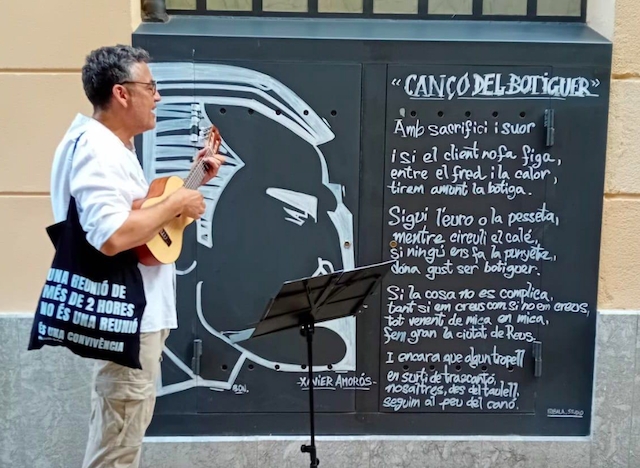 "CANÇÓ DEL BOTIGUER"
Amb sacrifici i suor
i si el client no fa figa,
entre el fred i la calor,
tirem amunt la botiga.
Sigui l'euro o la pesseta,
mentre circuli el calé,
si ningú ens fa la punyeta,
dóna gust ser botiguer.
Si la cosa no es complica,
tant si em creus com si no em creus,
tot venent de mica en mica,
fem gran la ciutat de Reus.
I encara que algun tropell
en surti de trascantó,
nosaltres, des del taulell,
seguim al peu del canó.
-XAVIER AMORÓS-
UNA REUNIÓ DE
MÉS DE 2 HORES
NO ÉS UNA REUNIÓ
ÉS UNA CONVIVÈNCIA